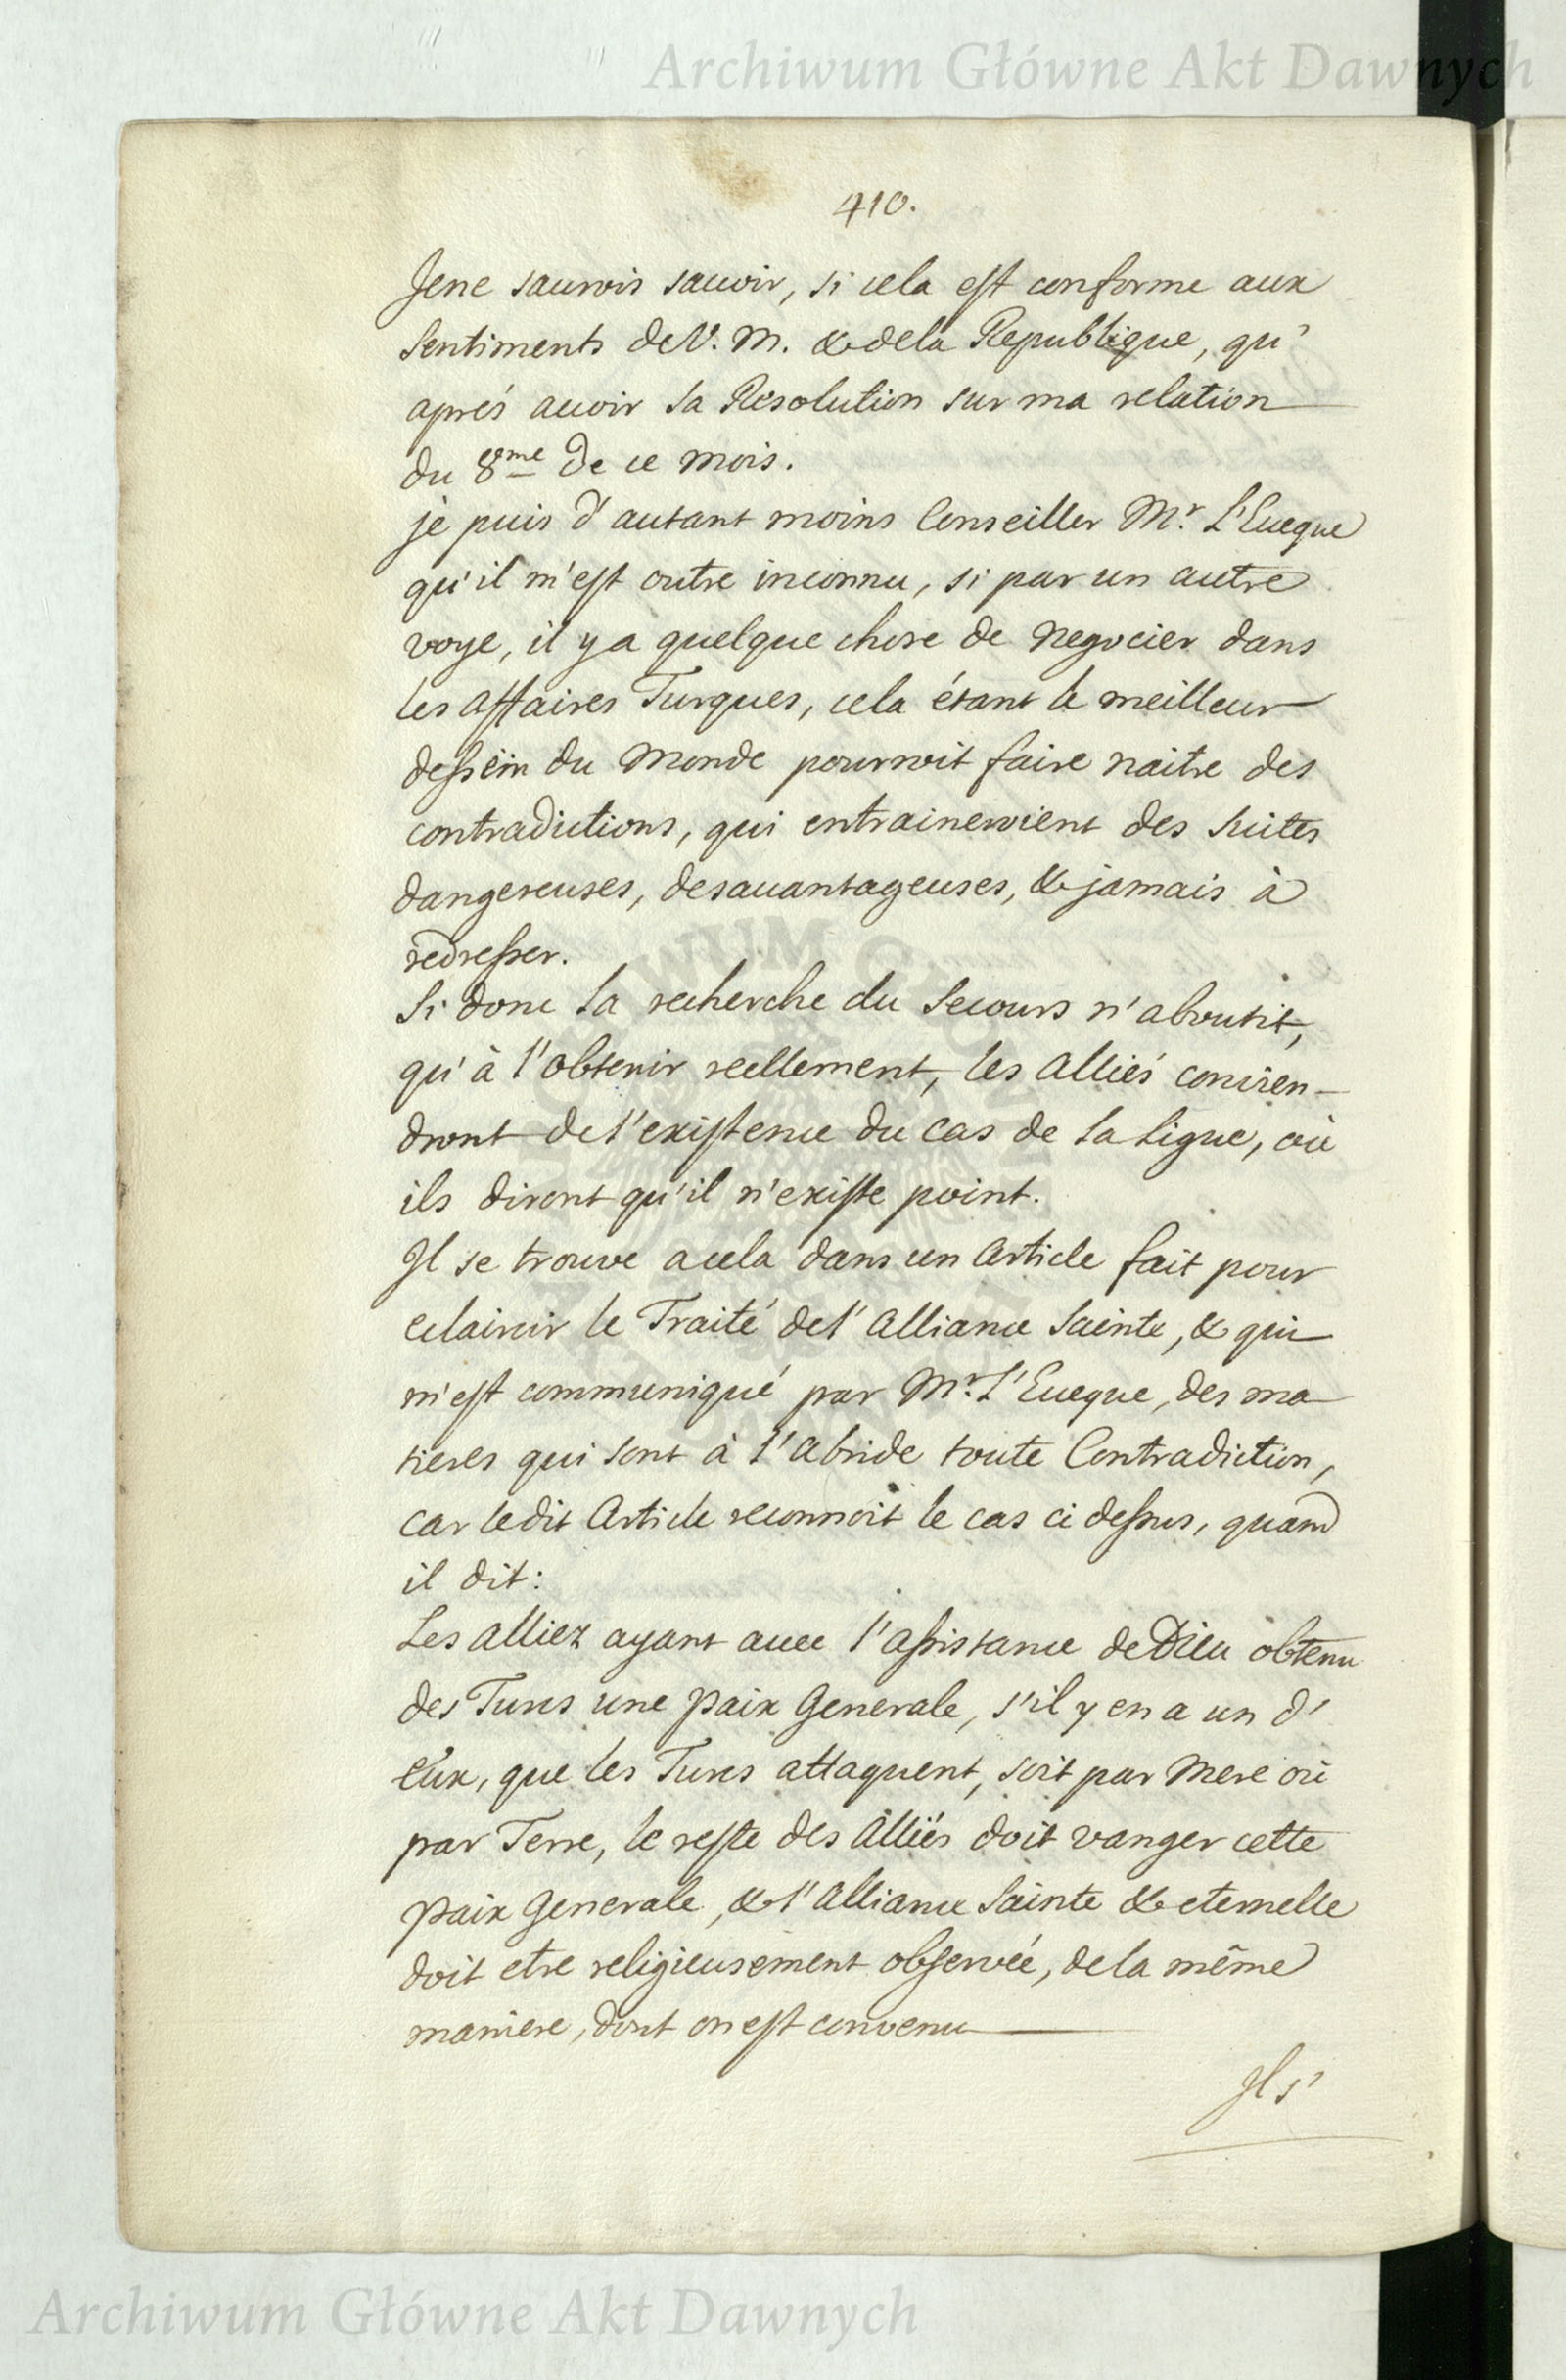 Archiwum Główne Akt Dawnych
410.
Jene saurois sauoir, si cela est conforme aux
Sentiments de V. M. & dela Republique, qu'
aprés auoir sa Resolution sur ma relation
du 8eme de ce mois.
je puis d'autant moins Conseiller Mr. L'Eueque
qu'il m'est outre inconnu, si par un autre
voye, il y a quelque chose de negocier dans
les affaires Turques, cela étant le meilleur
dessein du Monde pourroit faire naitre des
contradictions, qui entraineroient des suites
dangereuses, desauantageuses, & jamais à
redresser.
Si donc la recherche du Secours n'aboutit,
qu'à l'obtenir reellement, les Alliés convien-
dront de l'existence du Cas de la Ligue, où
ils diront qu'il n'existe point.
Il se trouve a cela dans un Article fait pour
eclaircir le Traité de l'Alliance Sainte, & qui
m'est communiqué par Mr. L'Eueque, des ma
tieres qui sont à l'abri de toute Contradiction,
car ledit Article reconnoit le cas ci dessus, quand
il dit:
Les alliez ayant auec l'assistance de Dieu obtenu
des Turcs une Paix Generale, s'il y en a un d'
eux, que les Turcs attaquent, soit par Mere où
par Terre, le reste des Alliés doit vanger cette
Paix Generale, & l'Alliance Sainte & eternelle
doit etre religieusement observée, de la même
maniere, dont on est convenu
Il s'
Archiwum Główne Akt Dawnych